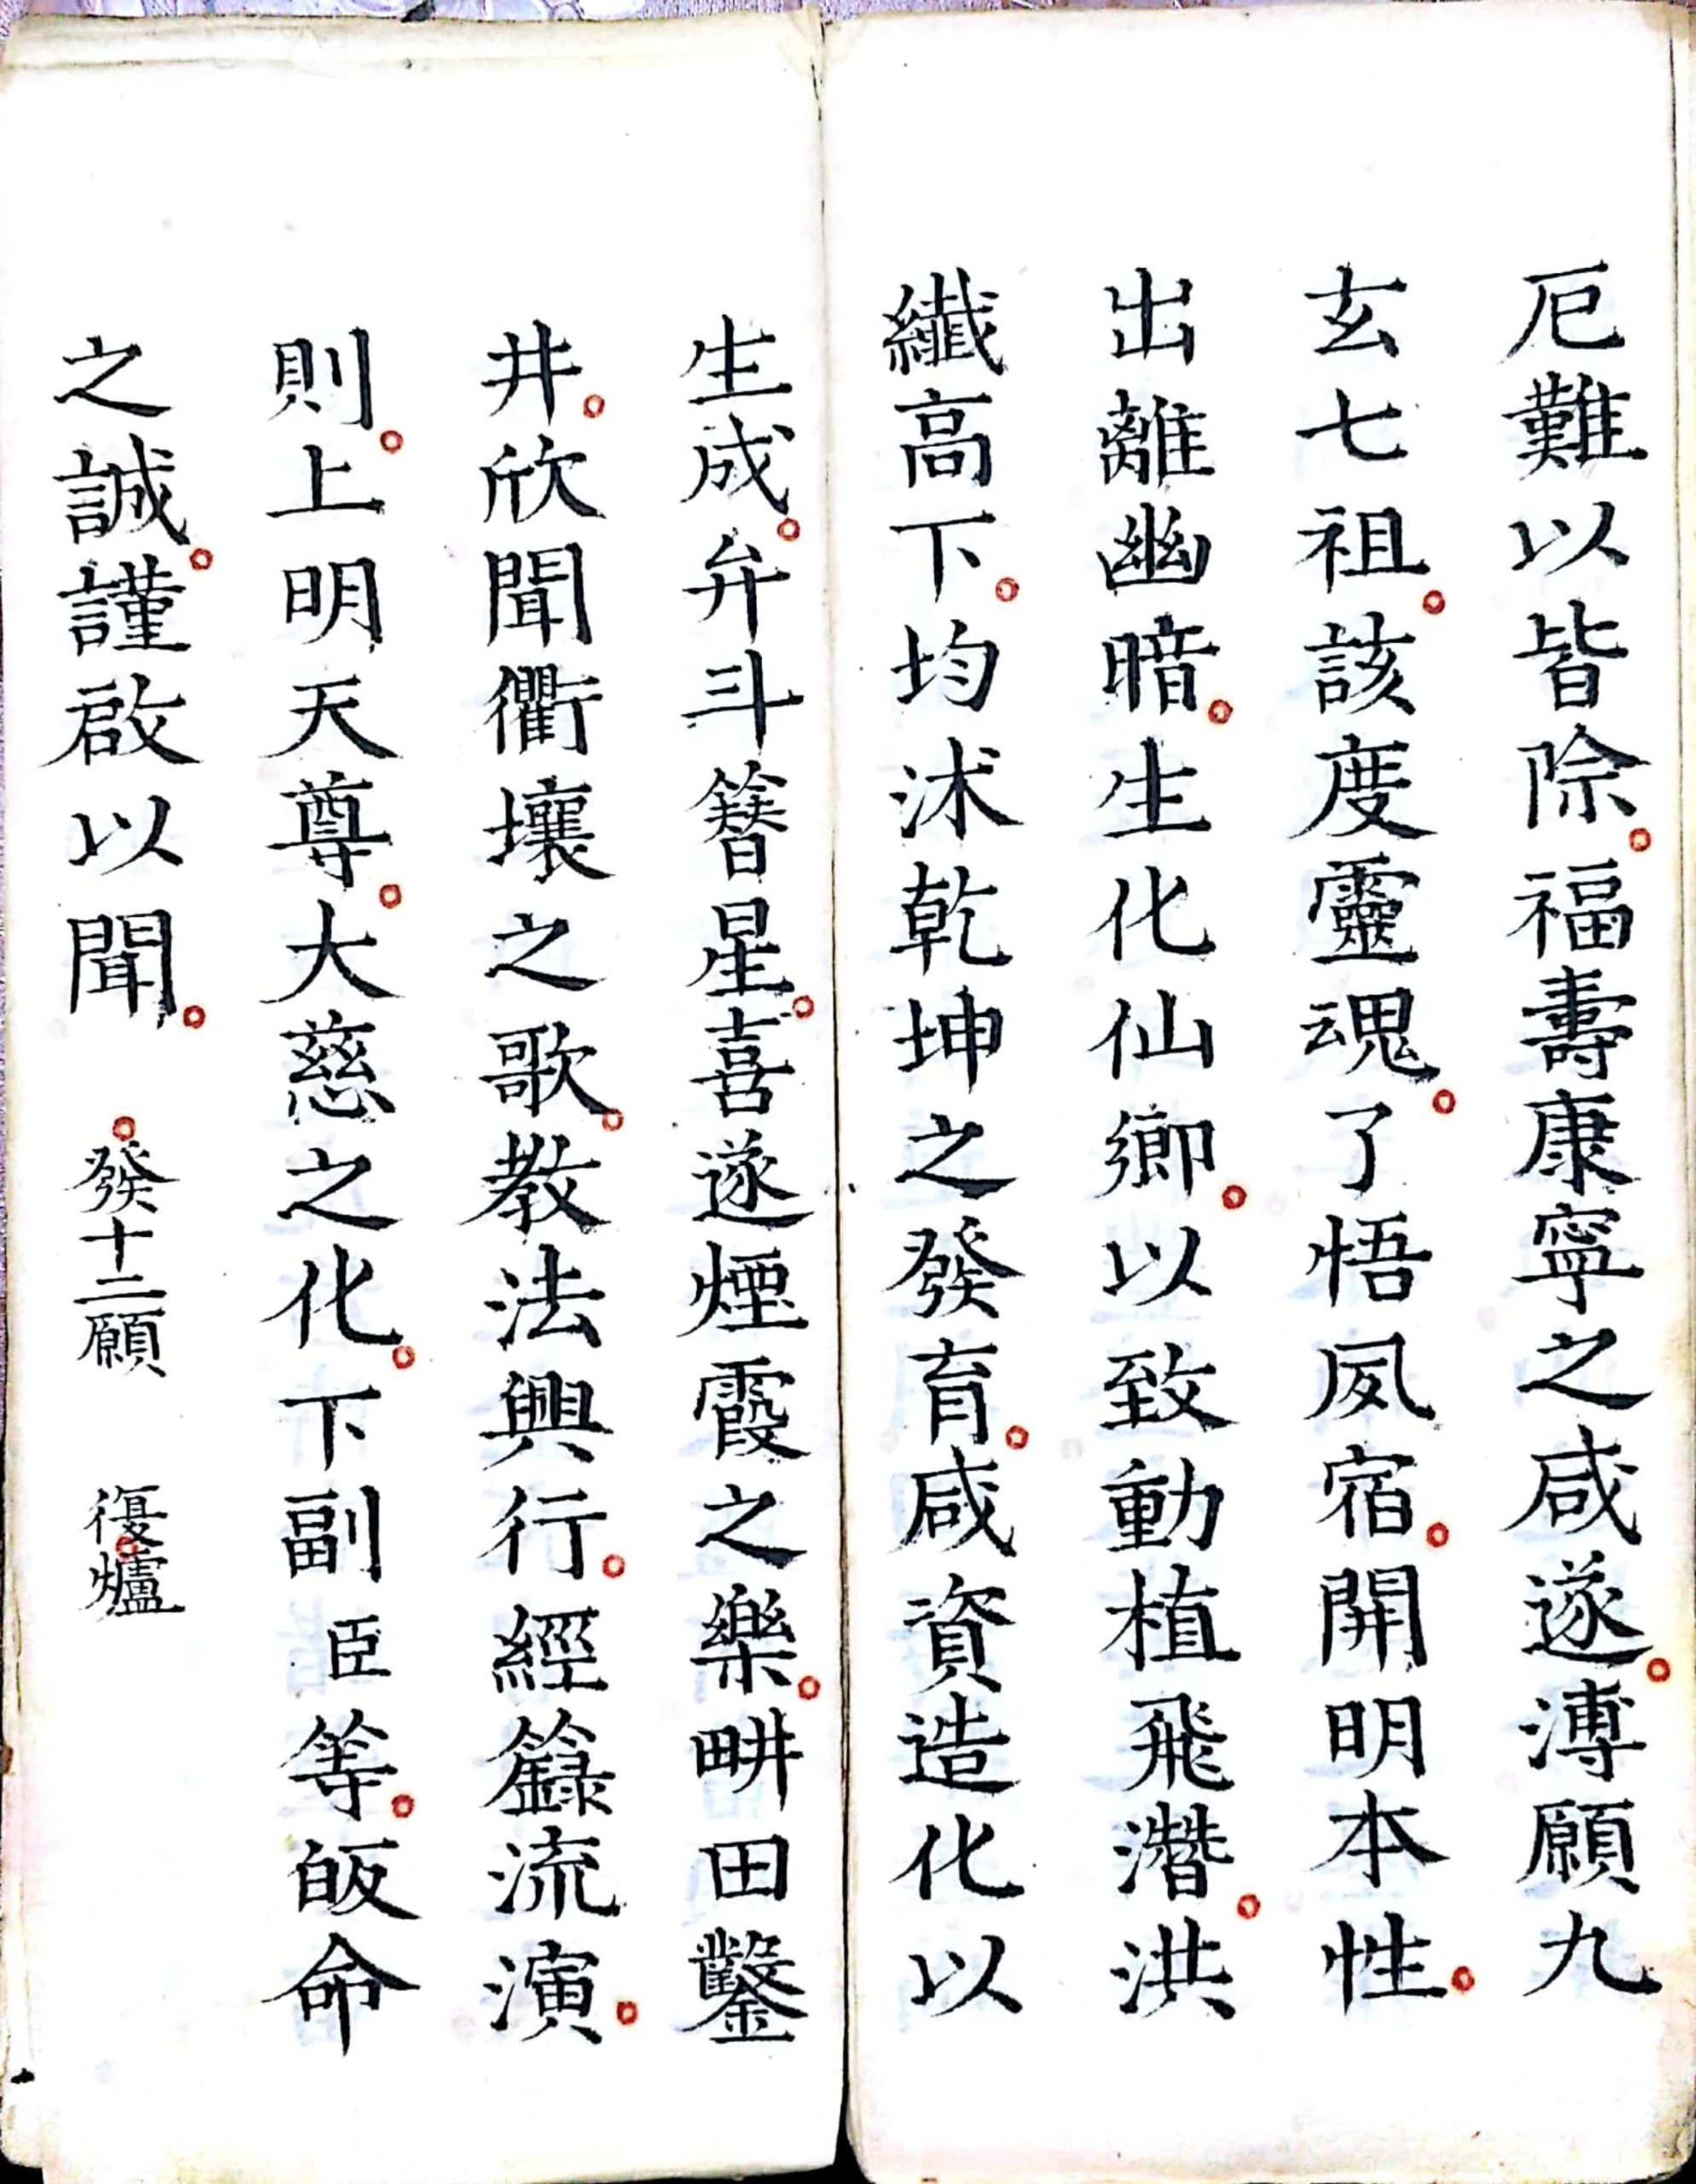 厄難以皆除。福壽康寧之咸遂。溥願九
玄七祖。該度靈魂。了悟夙宿。開明本性。
出離幽暗。生化仙鄉。以致動植飛潛。洪
纖高下。均沭乾坤之發育。咸資造化以
生成。弁斗簪星。喜遂煙霞之樂。畊田鑿
井。欣聞衢壤之歌。教法興行。經籙流演。
則。上明天尊。大慈之化。下副臣等。皈命
之誠。謹啟以聞。 。發十二願 復爐